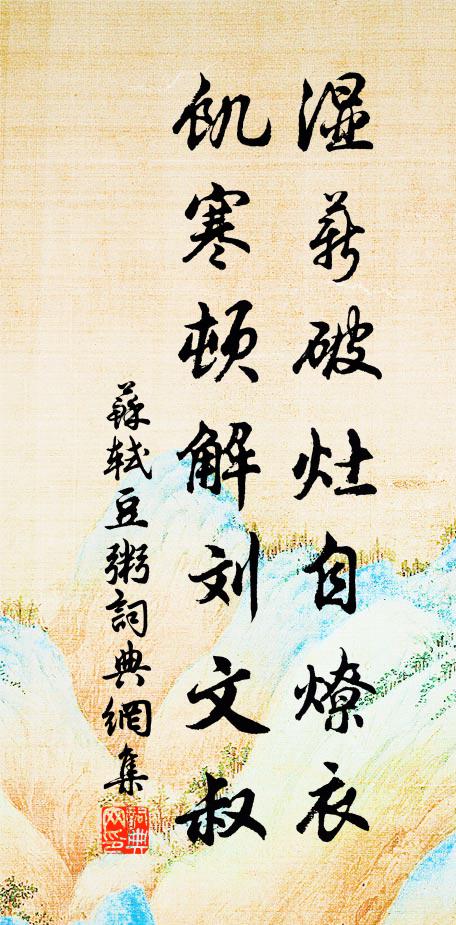 湿薪破灶自燎衣
飢寒顿解刘文叔
蘇軾豆粥詞典網集
詞典网印